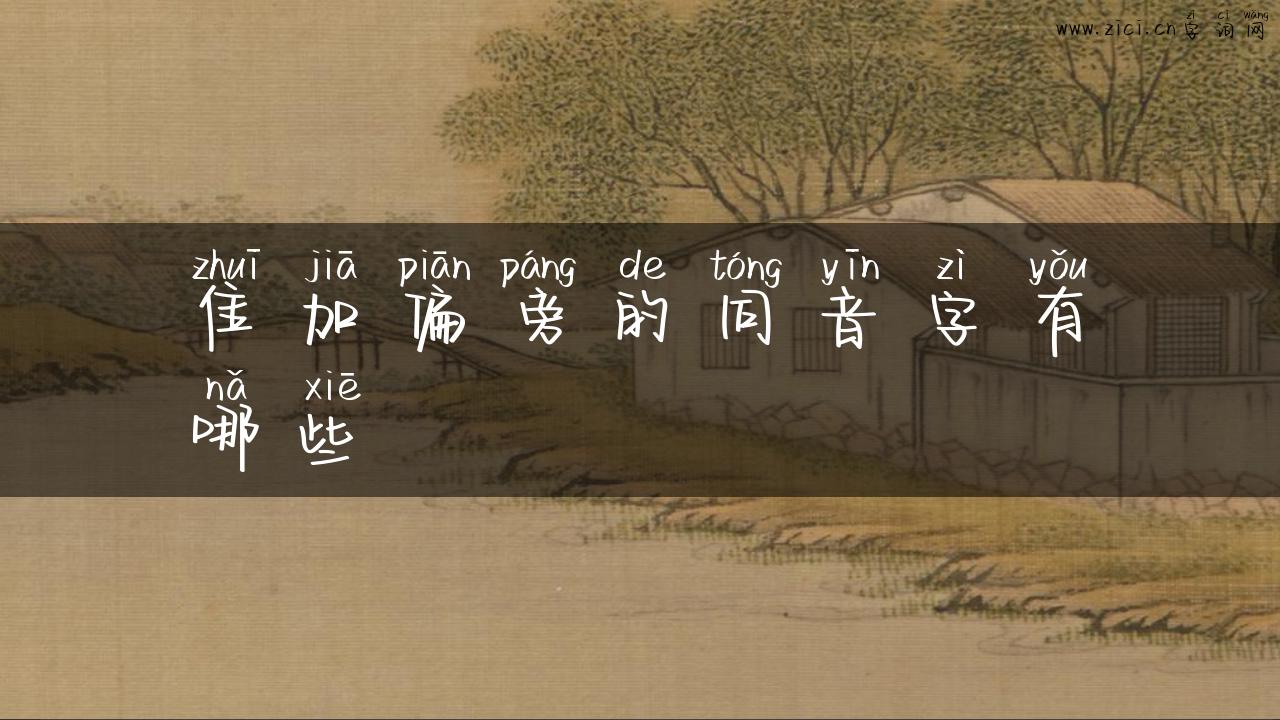 www.zici.cn zì cí wǎng
字词网
zhuī jiā piān páng de tóng yīn zì yǒu
隹加偏旁的同音字有
nǎ xiē
哪些